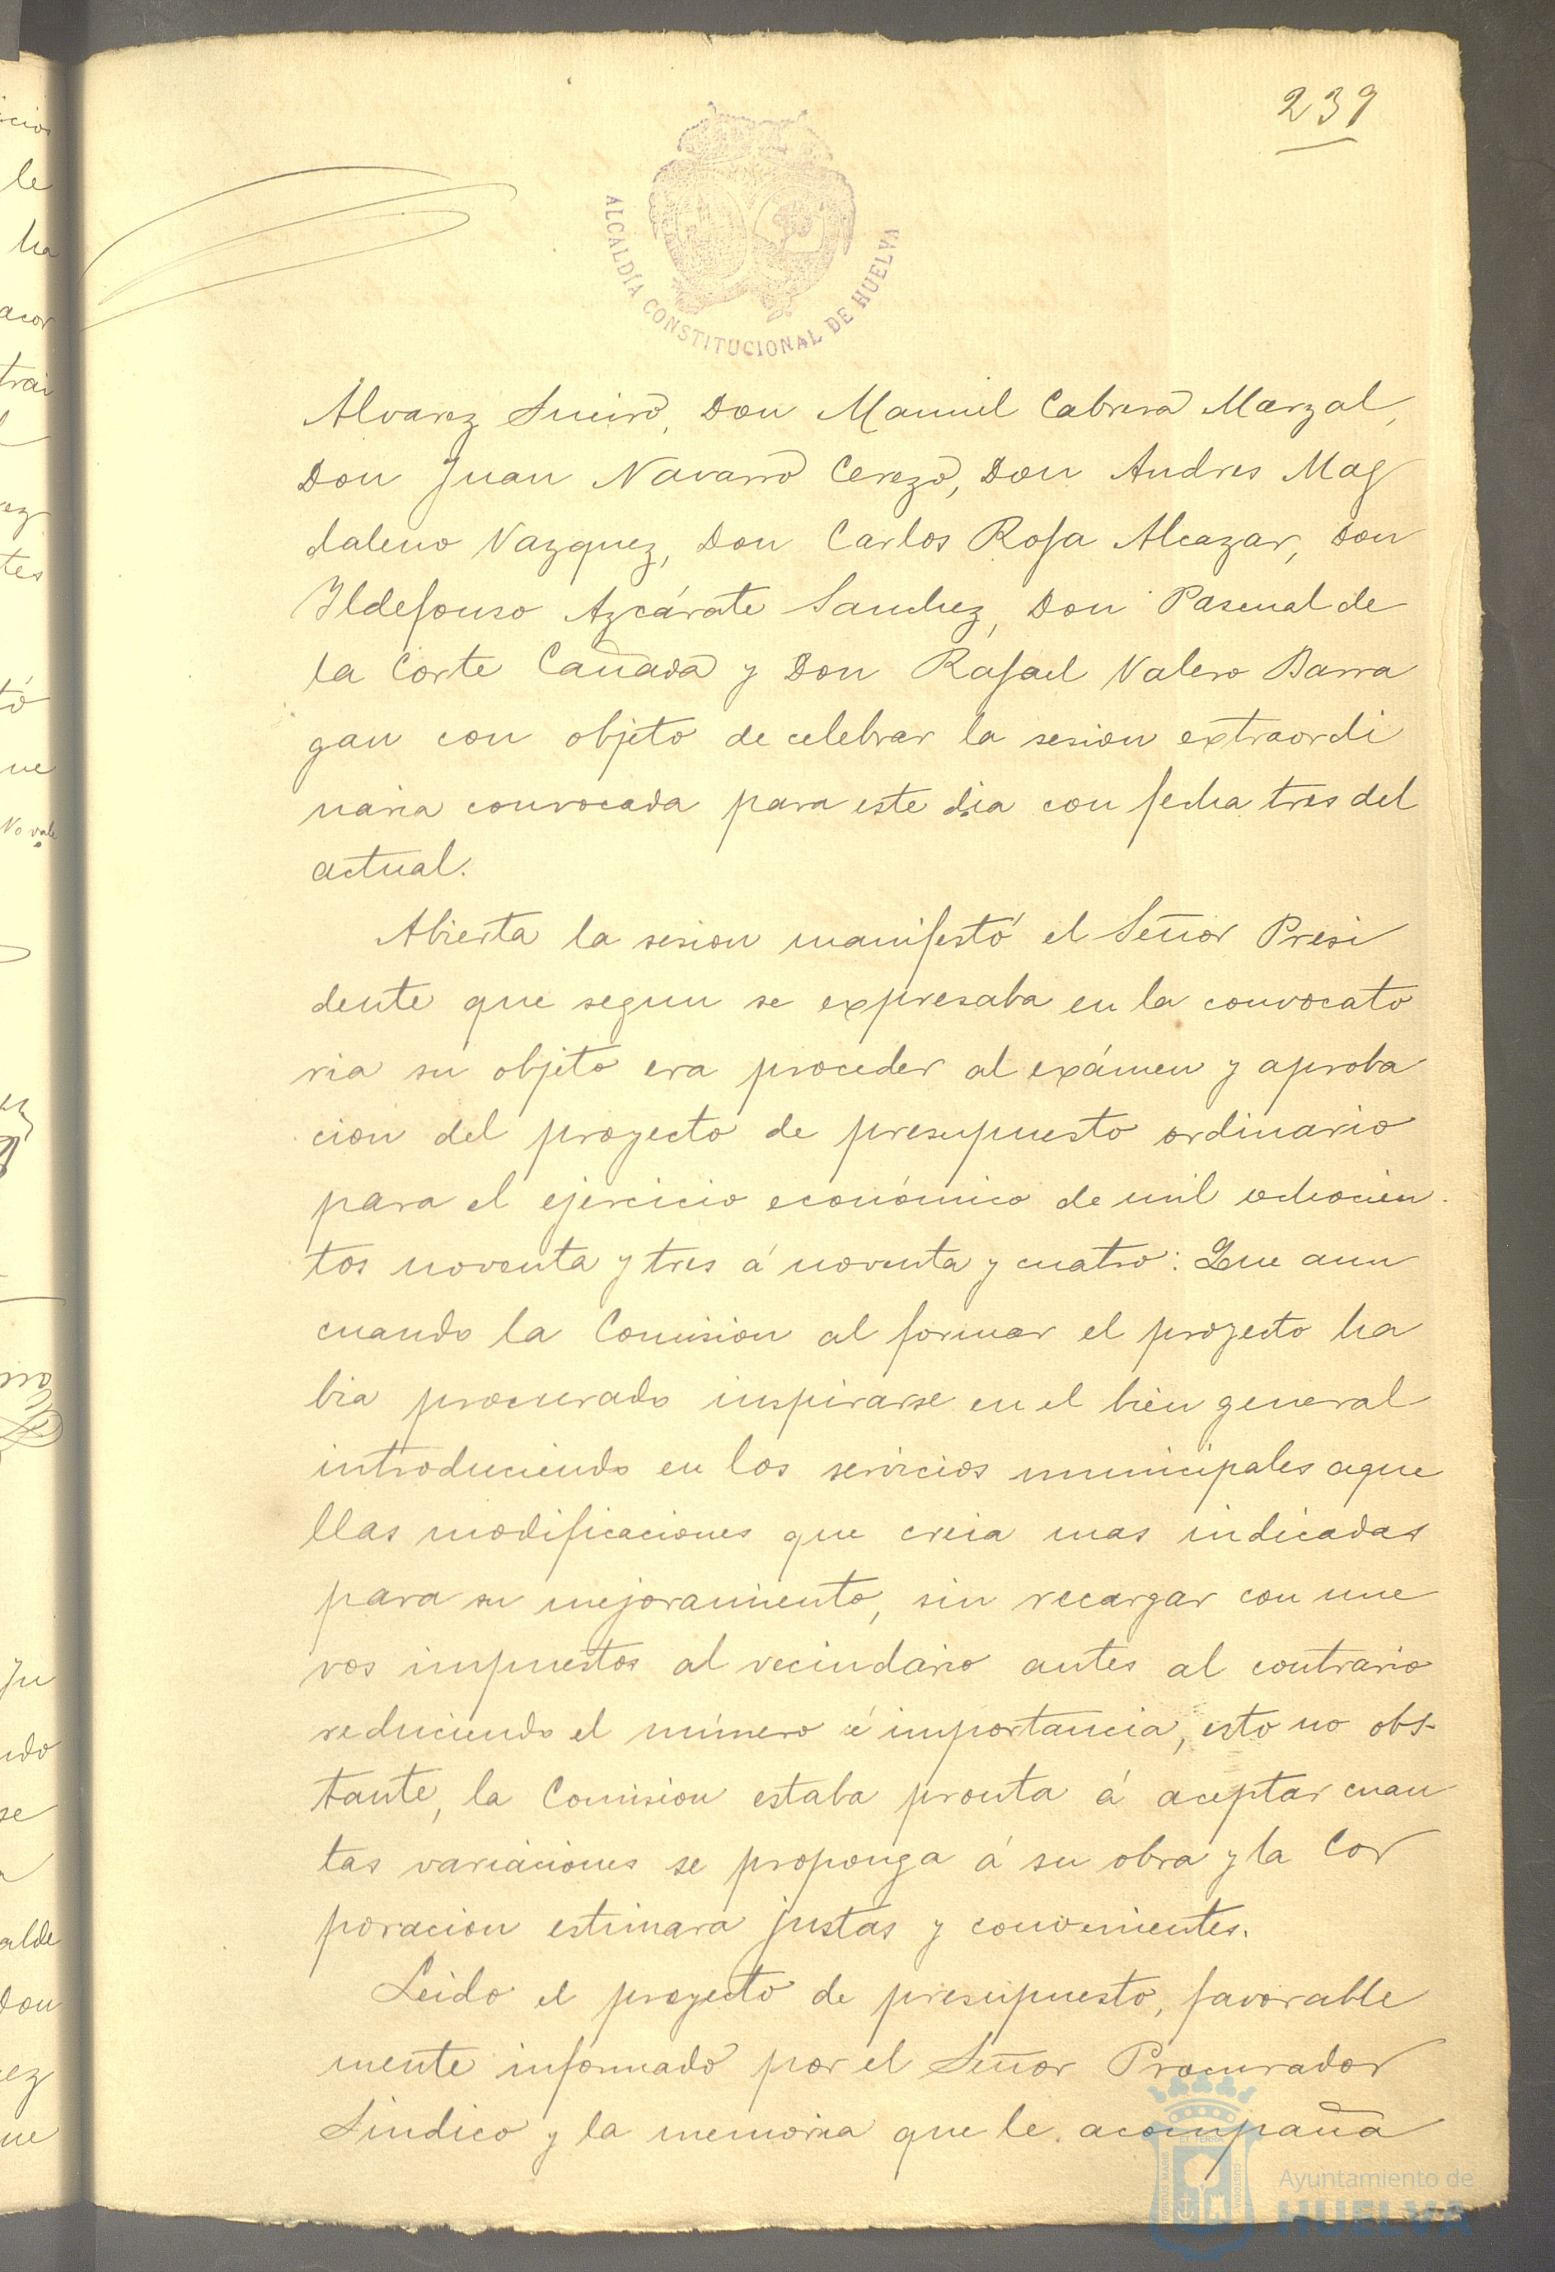 239
ALCALDÍA CONSTITUCIONAL DE HUELVA
Alvarez Sueiro, Don Manuel Cabrera Marzal,
Don Juan Navarro Cerezo, Don Andres Mag
daleno Vazquez, Don Carlos Rosa Alcazar, Don
Ildefonso Azcárate Sanchez, Don Pascual de
la Corte Cañada y Don Rafael Valero Barra
gan con objeto de celebrar la sesion extraordi
naria convocada para este dia con fecha tres del
actual.
Abierta la sesion manifestó el Señor Presi
dente que segun se expresaba en la convocato
ria su objeto era proceder al exámen y aproba
cion del proyecto de presupuesto ordinario
para el ejercicio económico de mil ochocien-
tos noventa y tres á noventa y cuatro: Que aun
cuando la Comision al formar el proyecto ha
bia procurado inspirarse en el bien general
introduciendo en los servicios municipales aque
llas modificaciones que creia mas indicadas
para su mejoramiento, sin recargar con nue
vos impuestos al vecindario antes al contrario
reduciendo el número é importancia, esto no obs-
tante, la Comision estaba pronta á aceptar cuan
tas variaciones se proponga á su obra y la Cor
poracion estimara justas y convenientes.
Leido el proyecto de presupuesto, favorable
mente informado por el Señor Procurador
Sindico y la memoria que le acompaña
Ayuntamiento de
HUELVA